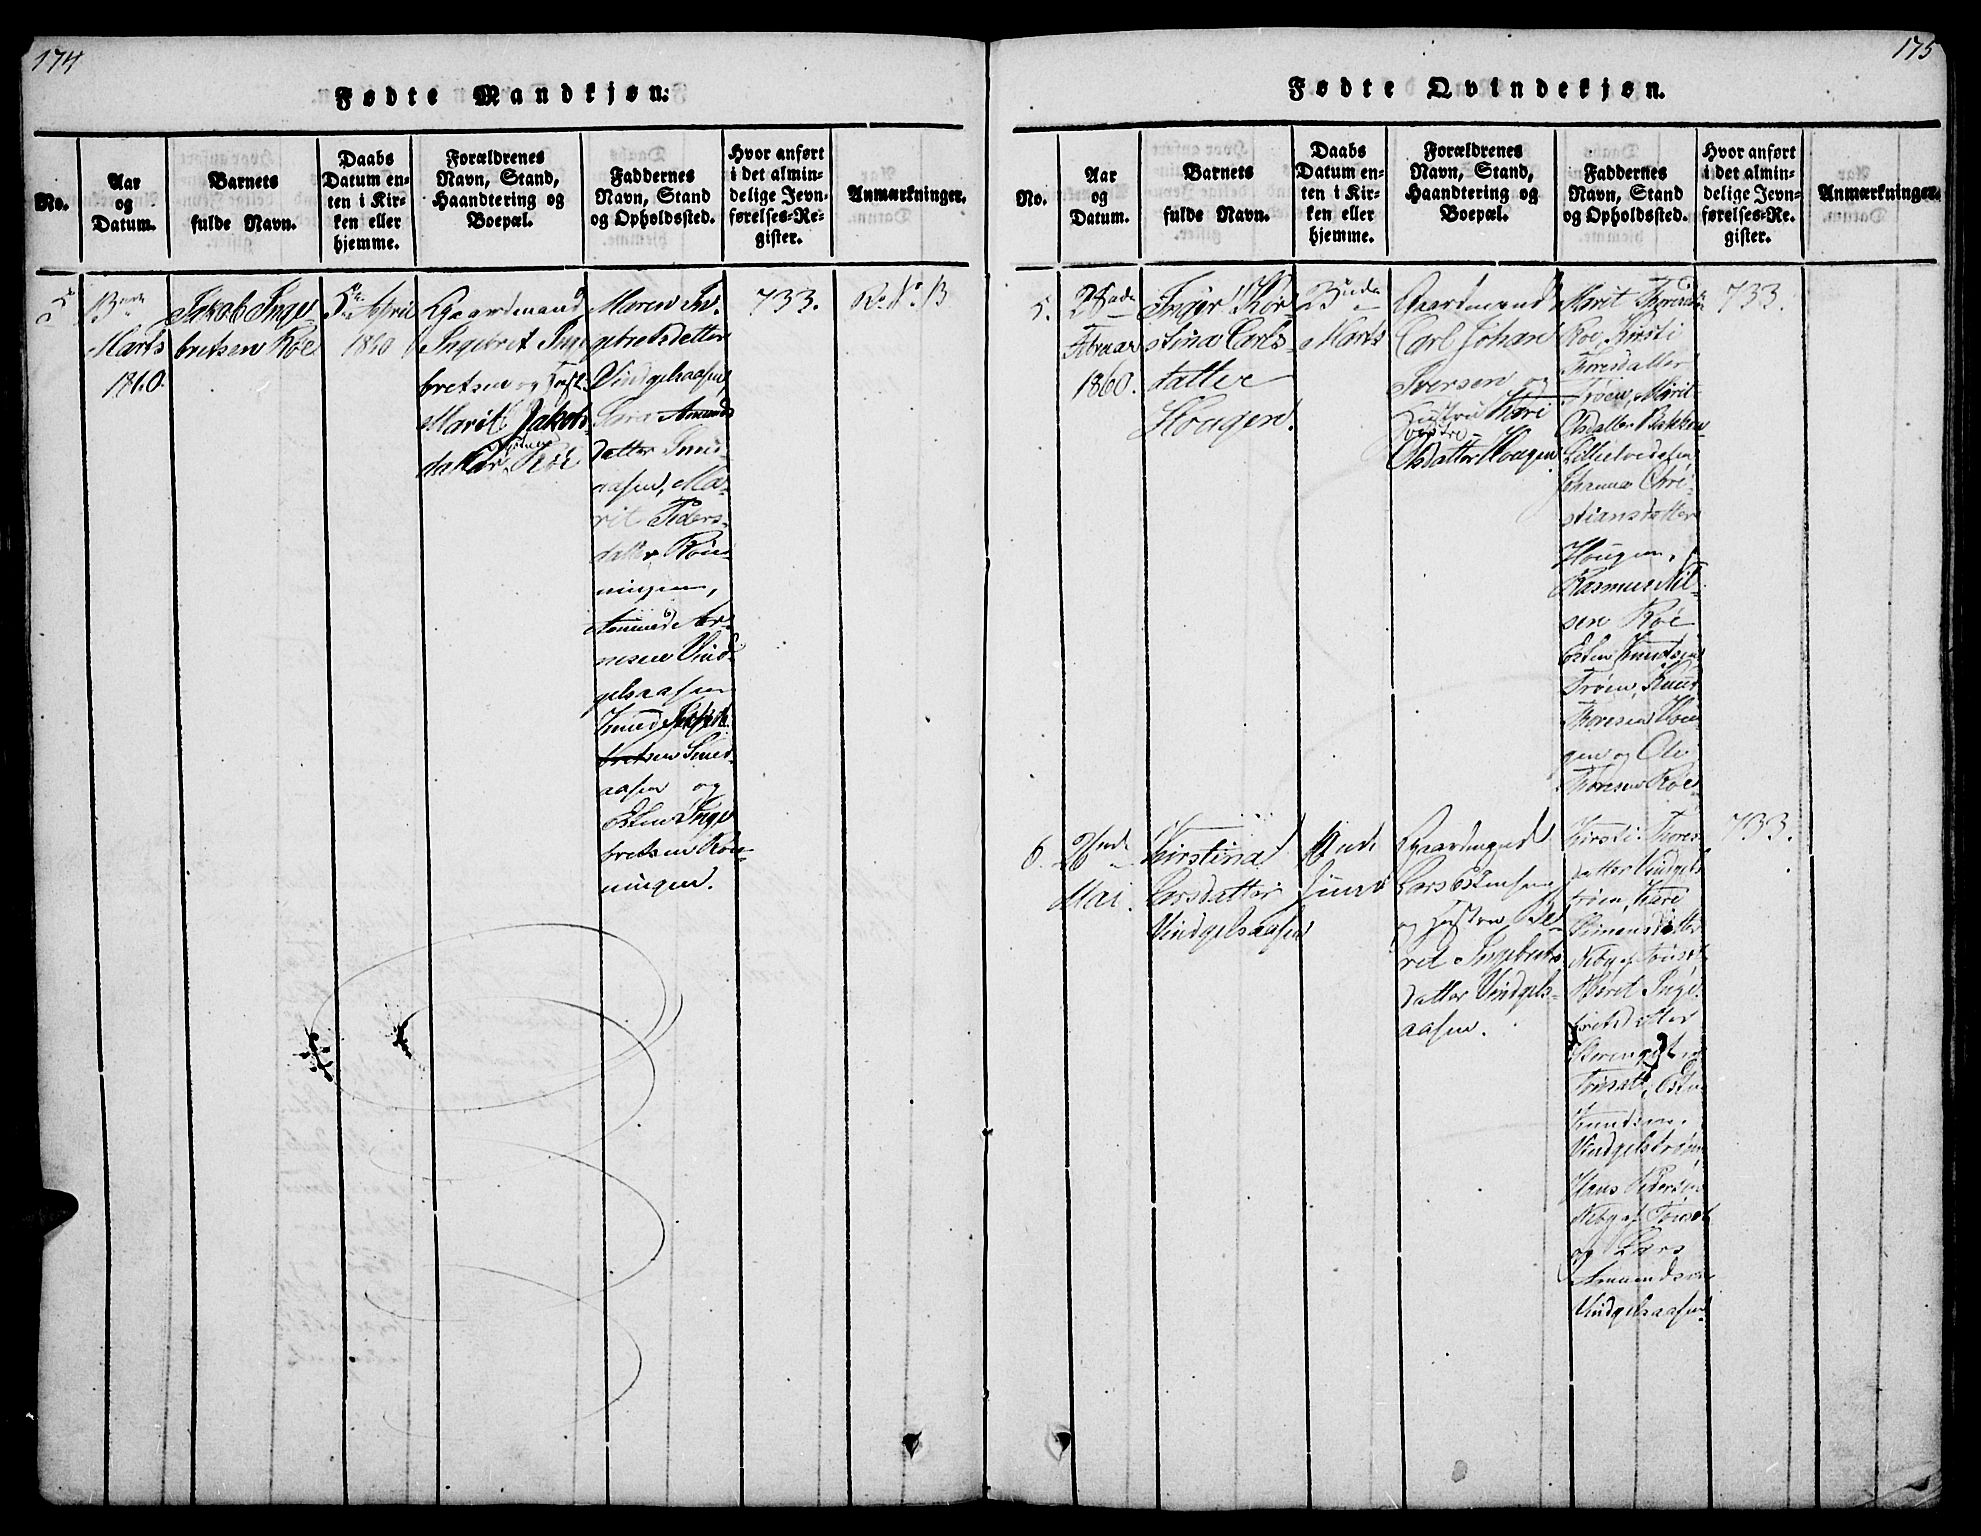 174
Fødte Mandkjøn.
No.
Aar
og
Datum.
Barnets
fulde Navn.
Daabs
Datum en-
ten i Kir-
ken eller
hjemme.
Forældrenes
Navn, Stand,
Haandtering og
Boepæl.
Faddernes
Navn, Stand
og Opholdssted.
Hvor anført
i det almin-
delige Jevn-
førelses-Re-
gister.
Anmærkninger.
5
13de
Marts
1860.
Jakob Inge
bretsen Røe
5te April
1860
Gaardmand
Ingebret Inge
bretsen og Hust.
Marit Jakobs-
datter Røe
Maren In-
gebretsdatter
Vindgelsaasen,
Amunds
datter Sme-
aasen, Ma-
rit Peders-
datter Røn-
ningen,
Amund Ar-
nesen Vind-
gelsaasen
Knud
bretsen Smed-
aasen og
Esten Inge
bretsen Røn-
ningen.
733.
175
Fødte Qvindekjøn.
No.
Aar
og
Datum.
Barnets
fulde Navn.
Daabs
Datum en-
ten i Kir-
ken eller
hjemme.
Forældrenes
Navn, Stand,
Haandtering og
Boepæl.
Faddernes
Navn, Stand
og Opholdssted.
Hvor anført
i det almin-
delige Jevn-
førelses-Re-
gister.
Anmærkninger.
5.
28de
Februar
1860.
Inger Kor-
stina Carls-
datter
Hougen.
Marts
Gaardmand
Carl Johan
Iversen og
Hustru Kari
Olsdatter Hougen
Marit Thores
Roe, Kirsti
Thoresdatter
Trøen, Marit
Olsdatter Bakken
Johanna Chri-
stiansdatter
Hougen,
Rasmus Nil-
sen Røe
Esten Knudsen
Trøen, Knud
Thoresen Hou
gen og Ole
Thoresen Røe
733.
6.
Mai.
Kirstina
Larsdatter
Vindgelsaasen
Juni
Gaardmand
Lars Estensen
og Hustru Be-
ret Ingebrets
datter Vindgels-
aasen.
Kirsti Thores-
datter Vindgels
trøen, Kari
Simensdatter
Neby af Tønset
Marit Inge-
bretsdatter
Tønset, Esten
Knudsen
Vindgelstrøen
Hans Pedersen
Neby af Tønset
og Lars
Amundsen
Vindgelsaasen.
733.